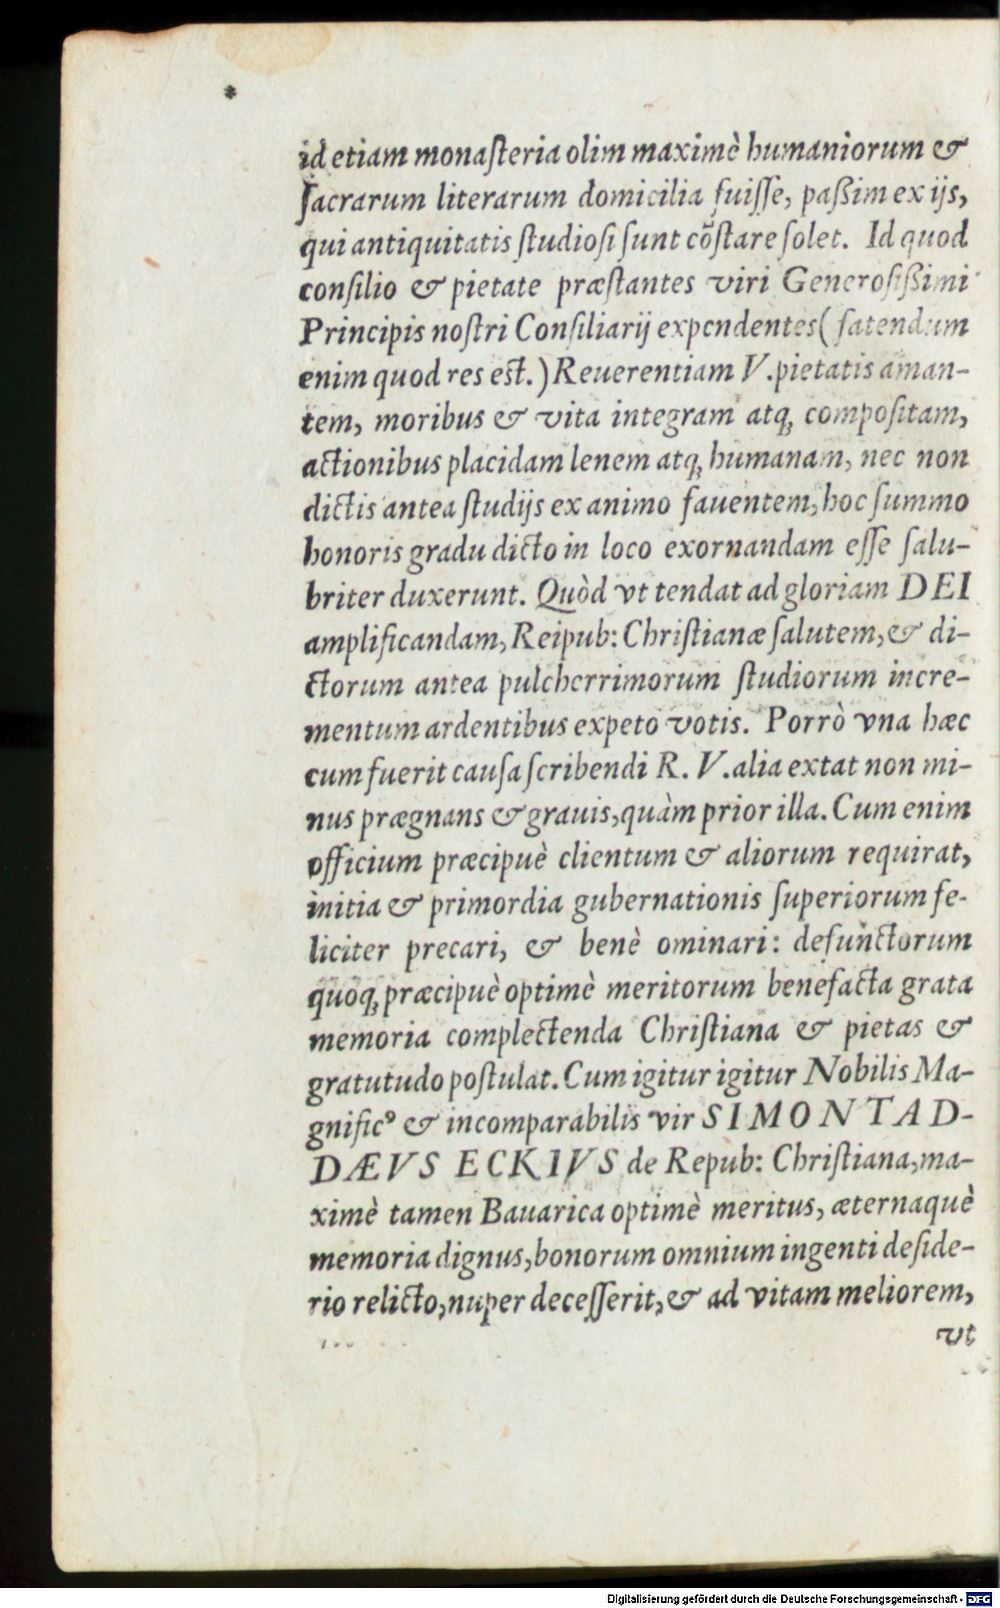 *
id etiam monaſteria olim maximè humaniorum &
ſacrarum literarum domicilia fuiſſe, paßim ex ijs,
qui antiquitatis ſtudioſi ſunt cõſtare ſolet. Id quod
conſilio & pietate præſtantes viri Generoſißimi
Principis noſtri Conſiliarij expendentes (fatendum
enim quod res est.) Reuerentiam V. pietatis aman-
tem, moribus & vita integram atq; compoſitam,
actionibus placidam lenem atq; humanam, nec non
dictis antea ſtudijs ex animo fauentem, hoc ſummo
honoris gradu dicto in loco exornandam eſſe ſalu-
briter duxerunt. Quòd vt tendat ad gloriam DEI
amplificandam, Reipub: Chriſtianæ ſalutem, & di-
ctorum antea pulcherrimorum ſtudiorum incre-
mentum ardentibus expeto votis. Porrò vna hæc
cum fuerit cauſa ſcribendi R. V. alia extat non mi-
nus prægnans & grauis, quàm prior illa. Cum enim
officium præcipuè clientum & aliorum requirat,
initia & primordia gubernationis ſuperiorum fe-
liciter precari, & benè ominari: defunctorum
quoq; præcipuè optimè meritorum benefacta grata
memoria complectenda Chriſtiana & pietas &
gratutudo poſtulat. Cum igitur igitur Nobilis Ma-
gnific⁹ & incomparabilis vir SIMON TAD-
DÆVS ECKIVS de Repub: Chriſtiana, ma-
ximè tamen Bauarica optimè meritus, æternaquè
memoria dignus, bonorum omnium ingenti deſide-
rio relicto, nuper deceſſerit, & ad vitam meliorem,
vt
Digitalisierung gefördert durch die Deutsche Forschungsgemeinschaft - DFG